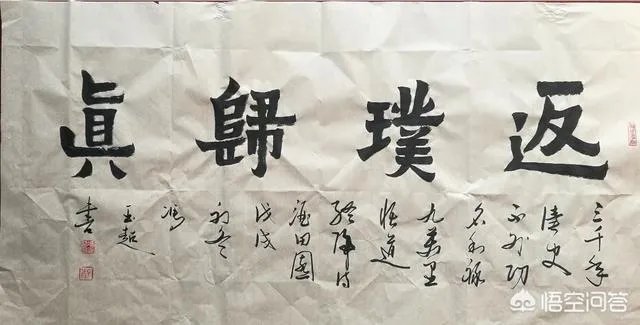 返璞歸眞
三千年
讀史
不外功
名利祿
九萬里
悟道
終歸詩
酒田園
戊戌
初冬
馮
書
悟空问答